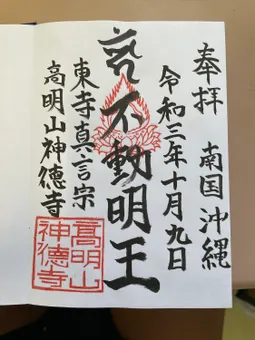 奉拝 南国沖縄
令和三年十月九日
不動明王
東寺真言宗
高明山神徳寺
高明山
神徳寺